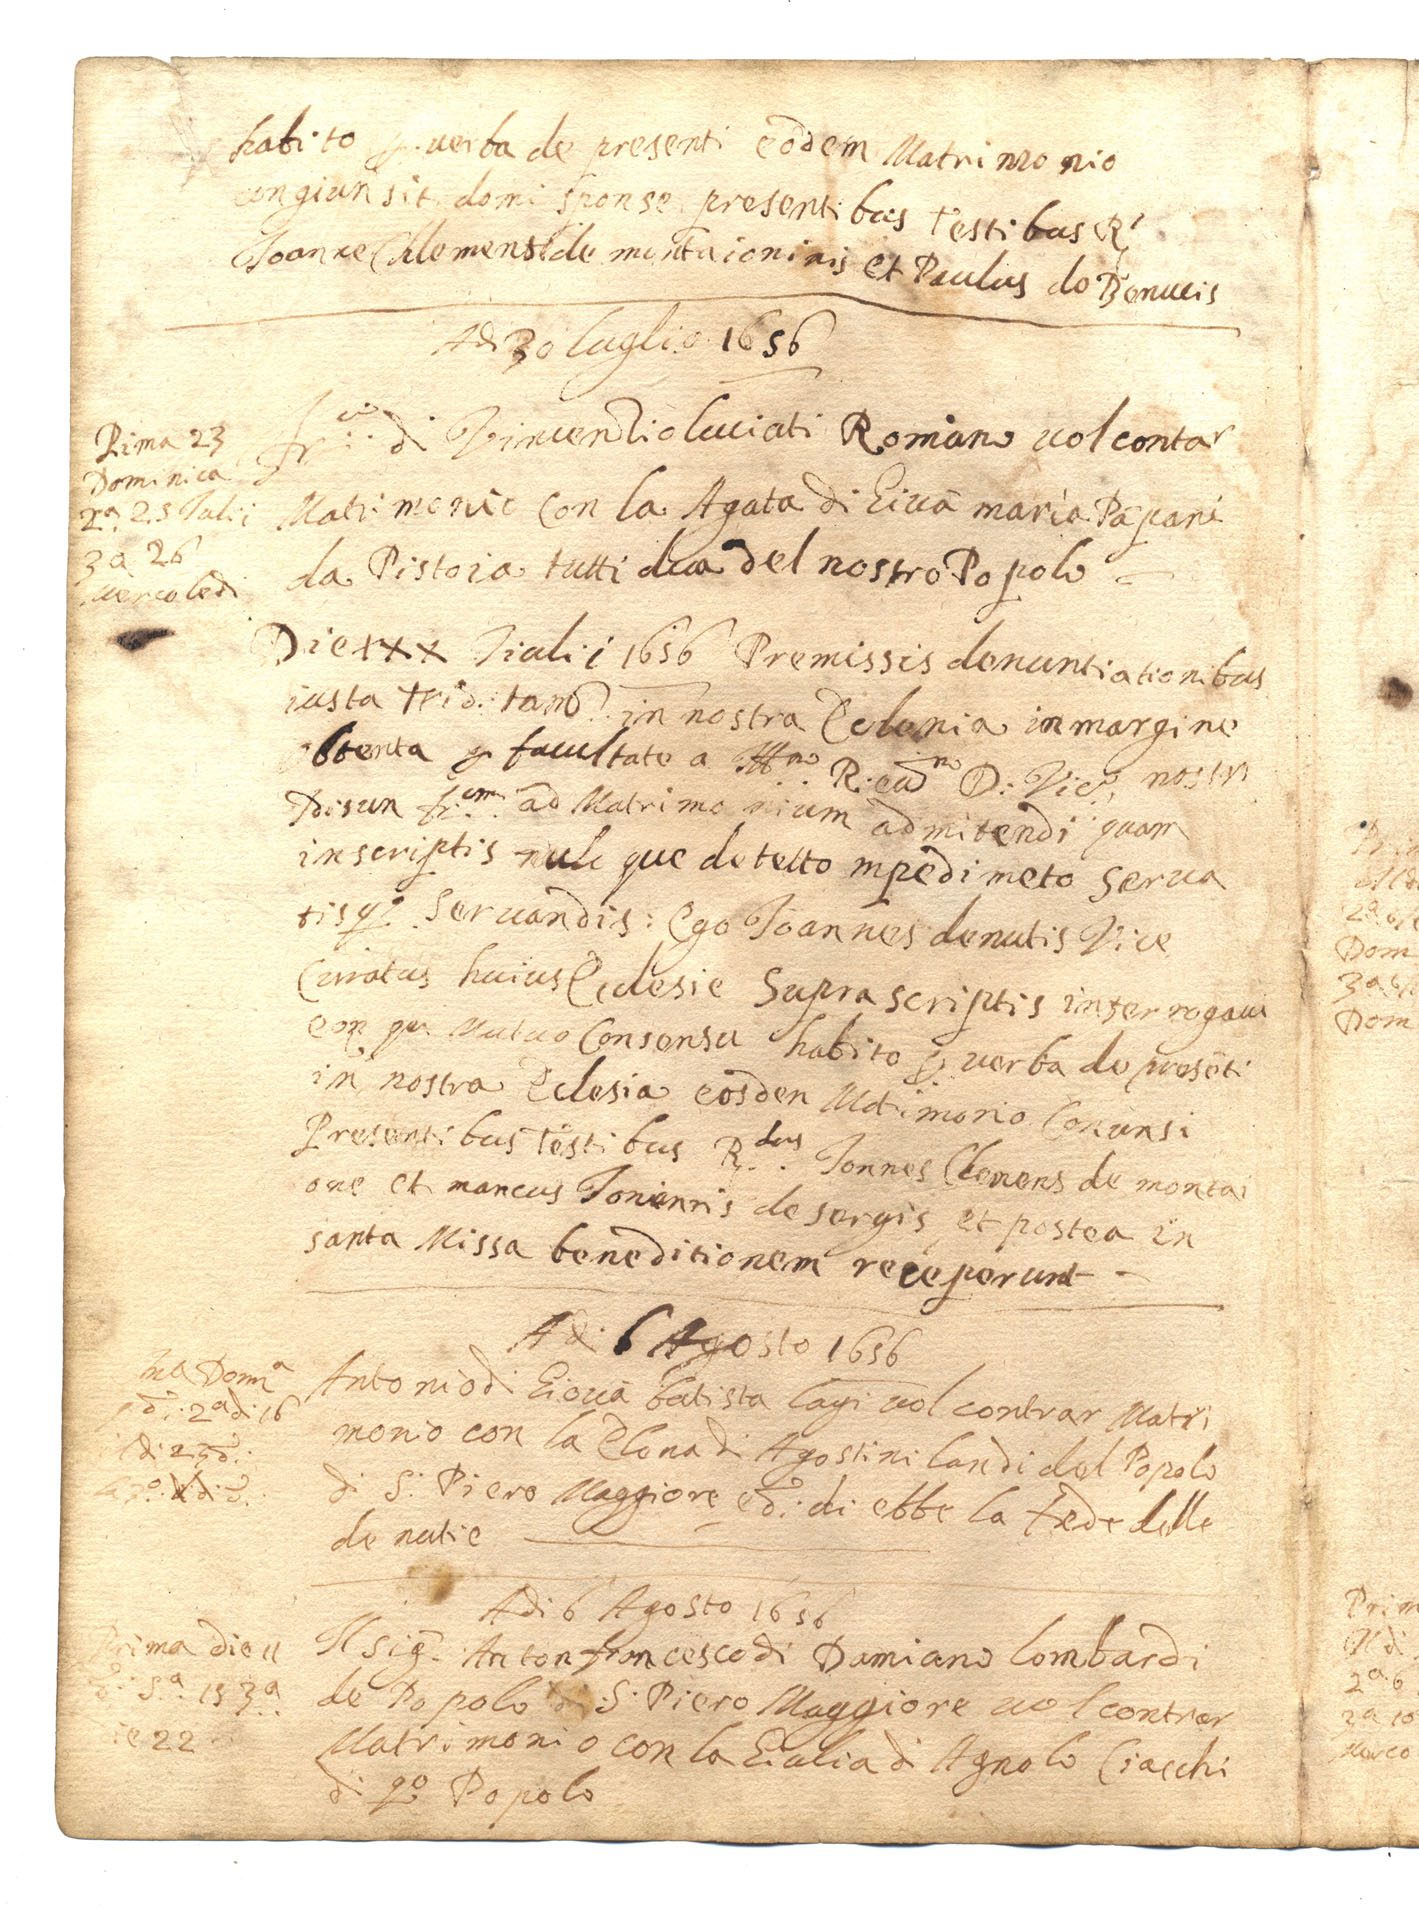 habito p. verba de presenti eodem Matrimonio
congiunsit domi sponse presentibus testibus R.
Joanne Clemens de montaioninis et Paulus de Benucis
Adi 30 luglio 1656
Prima 23
Dominica
2a. 25 Julii
3a 26
mercoledi
fr.co di Vincentio luciati Romano vol contar
Matrimonio con la Agata di Giovā maria Papani
da Pistoia tutti dua del nostro Popolo
Die xxx Iulii 1656 Premissis denuntiationibus
iusta trid. in nostra Eclesia in margine
obtenta p facultate a R. D. Vic. nostri
fr.um ad Matrimonium admitendi quam
inscriptis nulo que detetto mpedimeto serva
tisq. servandis: Ego Joannes Vice
Curatus huius Eclesie Suprascriptis interrogavi
eor qu. Mutuo Consensu habito p verba de presēti
in nostra Eclesia eosden Matimonio Coniunsi
Presentibus testibus R.dus Jonnes Clemens de montai
one et marcus de sergis et postea in
santa Missa beneditionem receperunt
Adi 6 Agosto 1656
Domca
2a di 16
Antonio di Giovā batista lapi vol contrar Matri
monio con la Elena di Agostini landi del Popolo
di S. Piero Maggiore e di ebbe la fede delle
denutie
Adi 6 Agosto 1656
Prima die 11
15 3a
die 22
Il sig. Anton francesco di Damiano lombardi
de Popolo di S. Piero Maggiore vol contrar
Matrimonio con la Giulia di Agnolo Ciaschi
di qo Popolo
Dom
3a
Dom
Prim
2a 6
3a 10